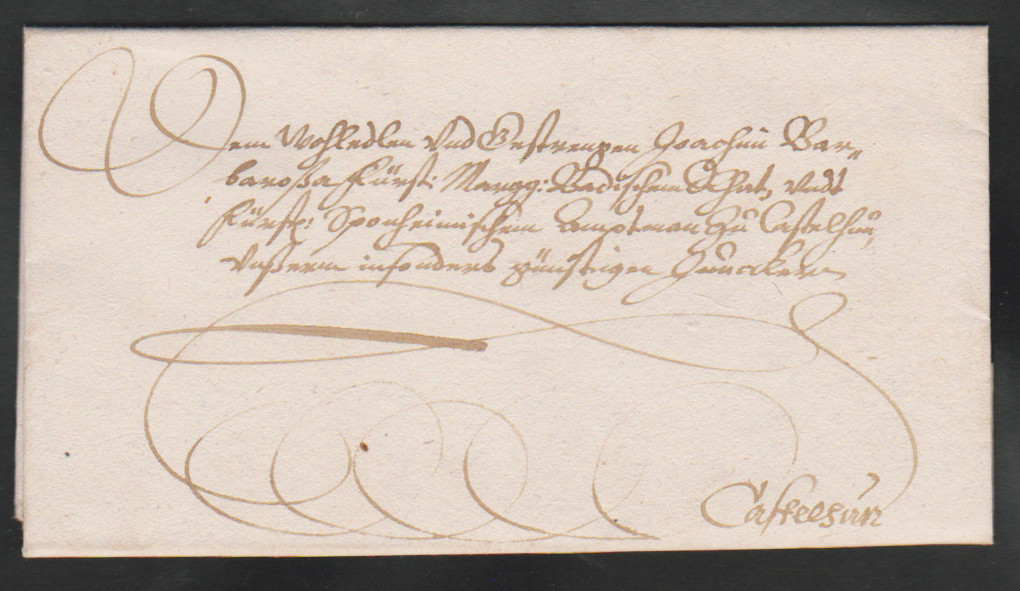 Dem Wohledlen Vnd Gestrengen Joachim Bar„
baroßa Fürst: Margg: Badischem Rhat, Vndt
Fürstl: Sponheimischem Amptman Zu Castelhun,
Vnßerm insonders günstigen Junckern
Castelhun